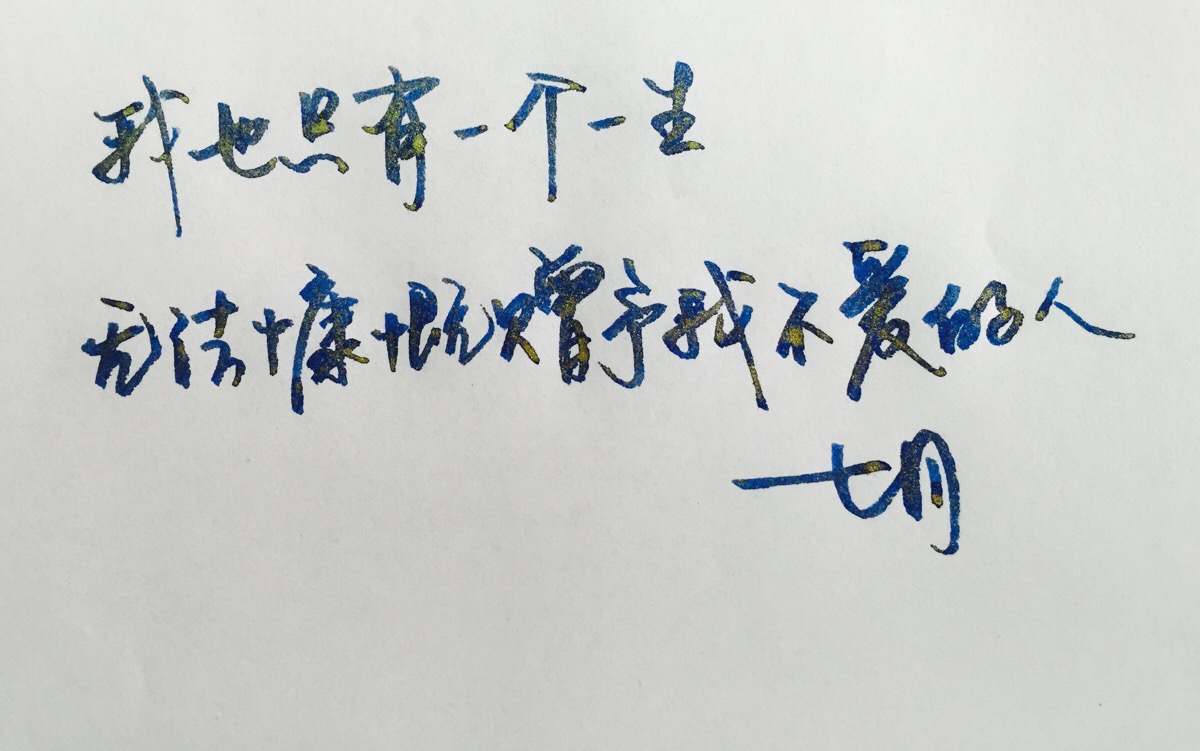 我也只有一个一生
无法慷慨赠予我不爱的人
一七月